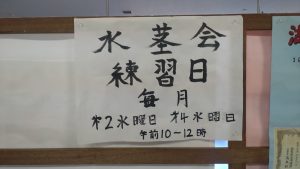 水茎会
練習日
毎月
才2水曜日 才4水曜日
午前10-12時